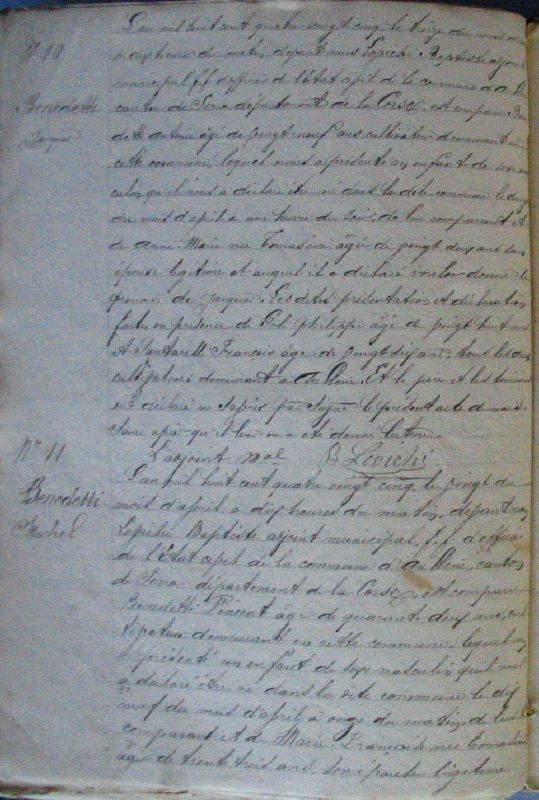 N° 10
Benedetti
Jacques
L'an mil huit cent quatre vingt cinq le treize du mois
à dix heures du matin, devant nous Lovichi Baptiste adjoint
municipal f.f. d'officier de l'Etat civil de la commune d'
canton de département de la Corse, est comparu
Antoine âgé de vingt neuf ans, cultivateur demeurant en
cette commune, lequel nous a présenté un enfant de sexe
culin, qu'il nous a déclaré être né dans la dite commune le
du mois d'avril à une heure du soir, de lui comparant et
de Anne Marie née Tomasini âgée de vingt deux ans son
épouse légitime et auquel il a déclaré vouloir donner le
prénom de Jacques. Les dites présentation et déclaration
faites en présence de Philippe âgé de vingt huit ans
et Santarelli François âgé de vingt dix ans, tous les deux
cultivateurs demeurant à. Et le père et les témoins
ont déclaré ne savoir pas signer le présent acte de nais
sance après qu'il leur en a été donné lecture.
L'adjoint mal B Lovichi
N° 11
Benedetti
Michel
L'an mil huit cent quatre vingt cinq, le vingt du
mois d'avril à dix heures du matin, devant nous
Lovichi Baptiste adjoint municipal, f.f. d'officier
de l'Etat civil de la commune d', canton
de département de la Corse, est comparu
Benedetti Vincent âgé de quarante deux ans, cul
tivateur demeurant en cette commune, lequel nous
a présenté un enfant de sexe masculin qu'il nous
a déclaré être né dans la dite commune le dix
neuf du mois d'avril, à onze du matin, de lui
comparant et de Marie Françoise née Tomasini
âgée de trente trois ans, son épouse légitime